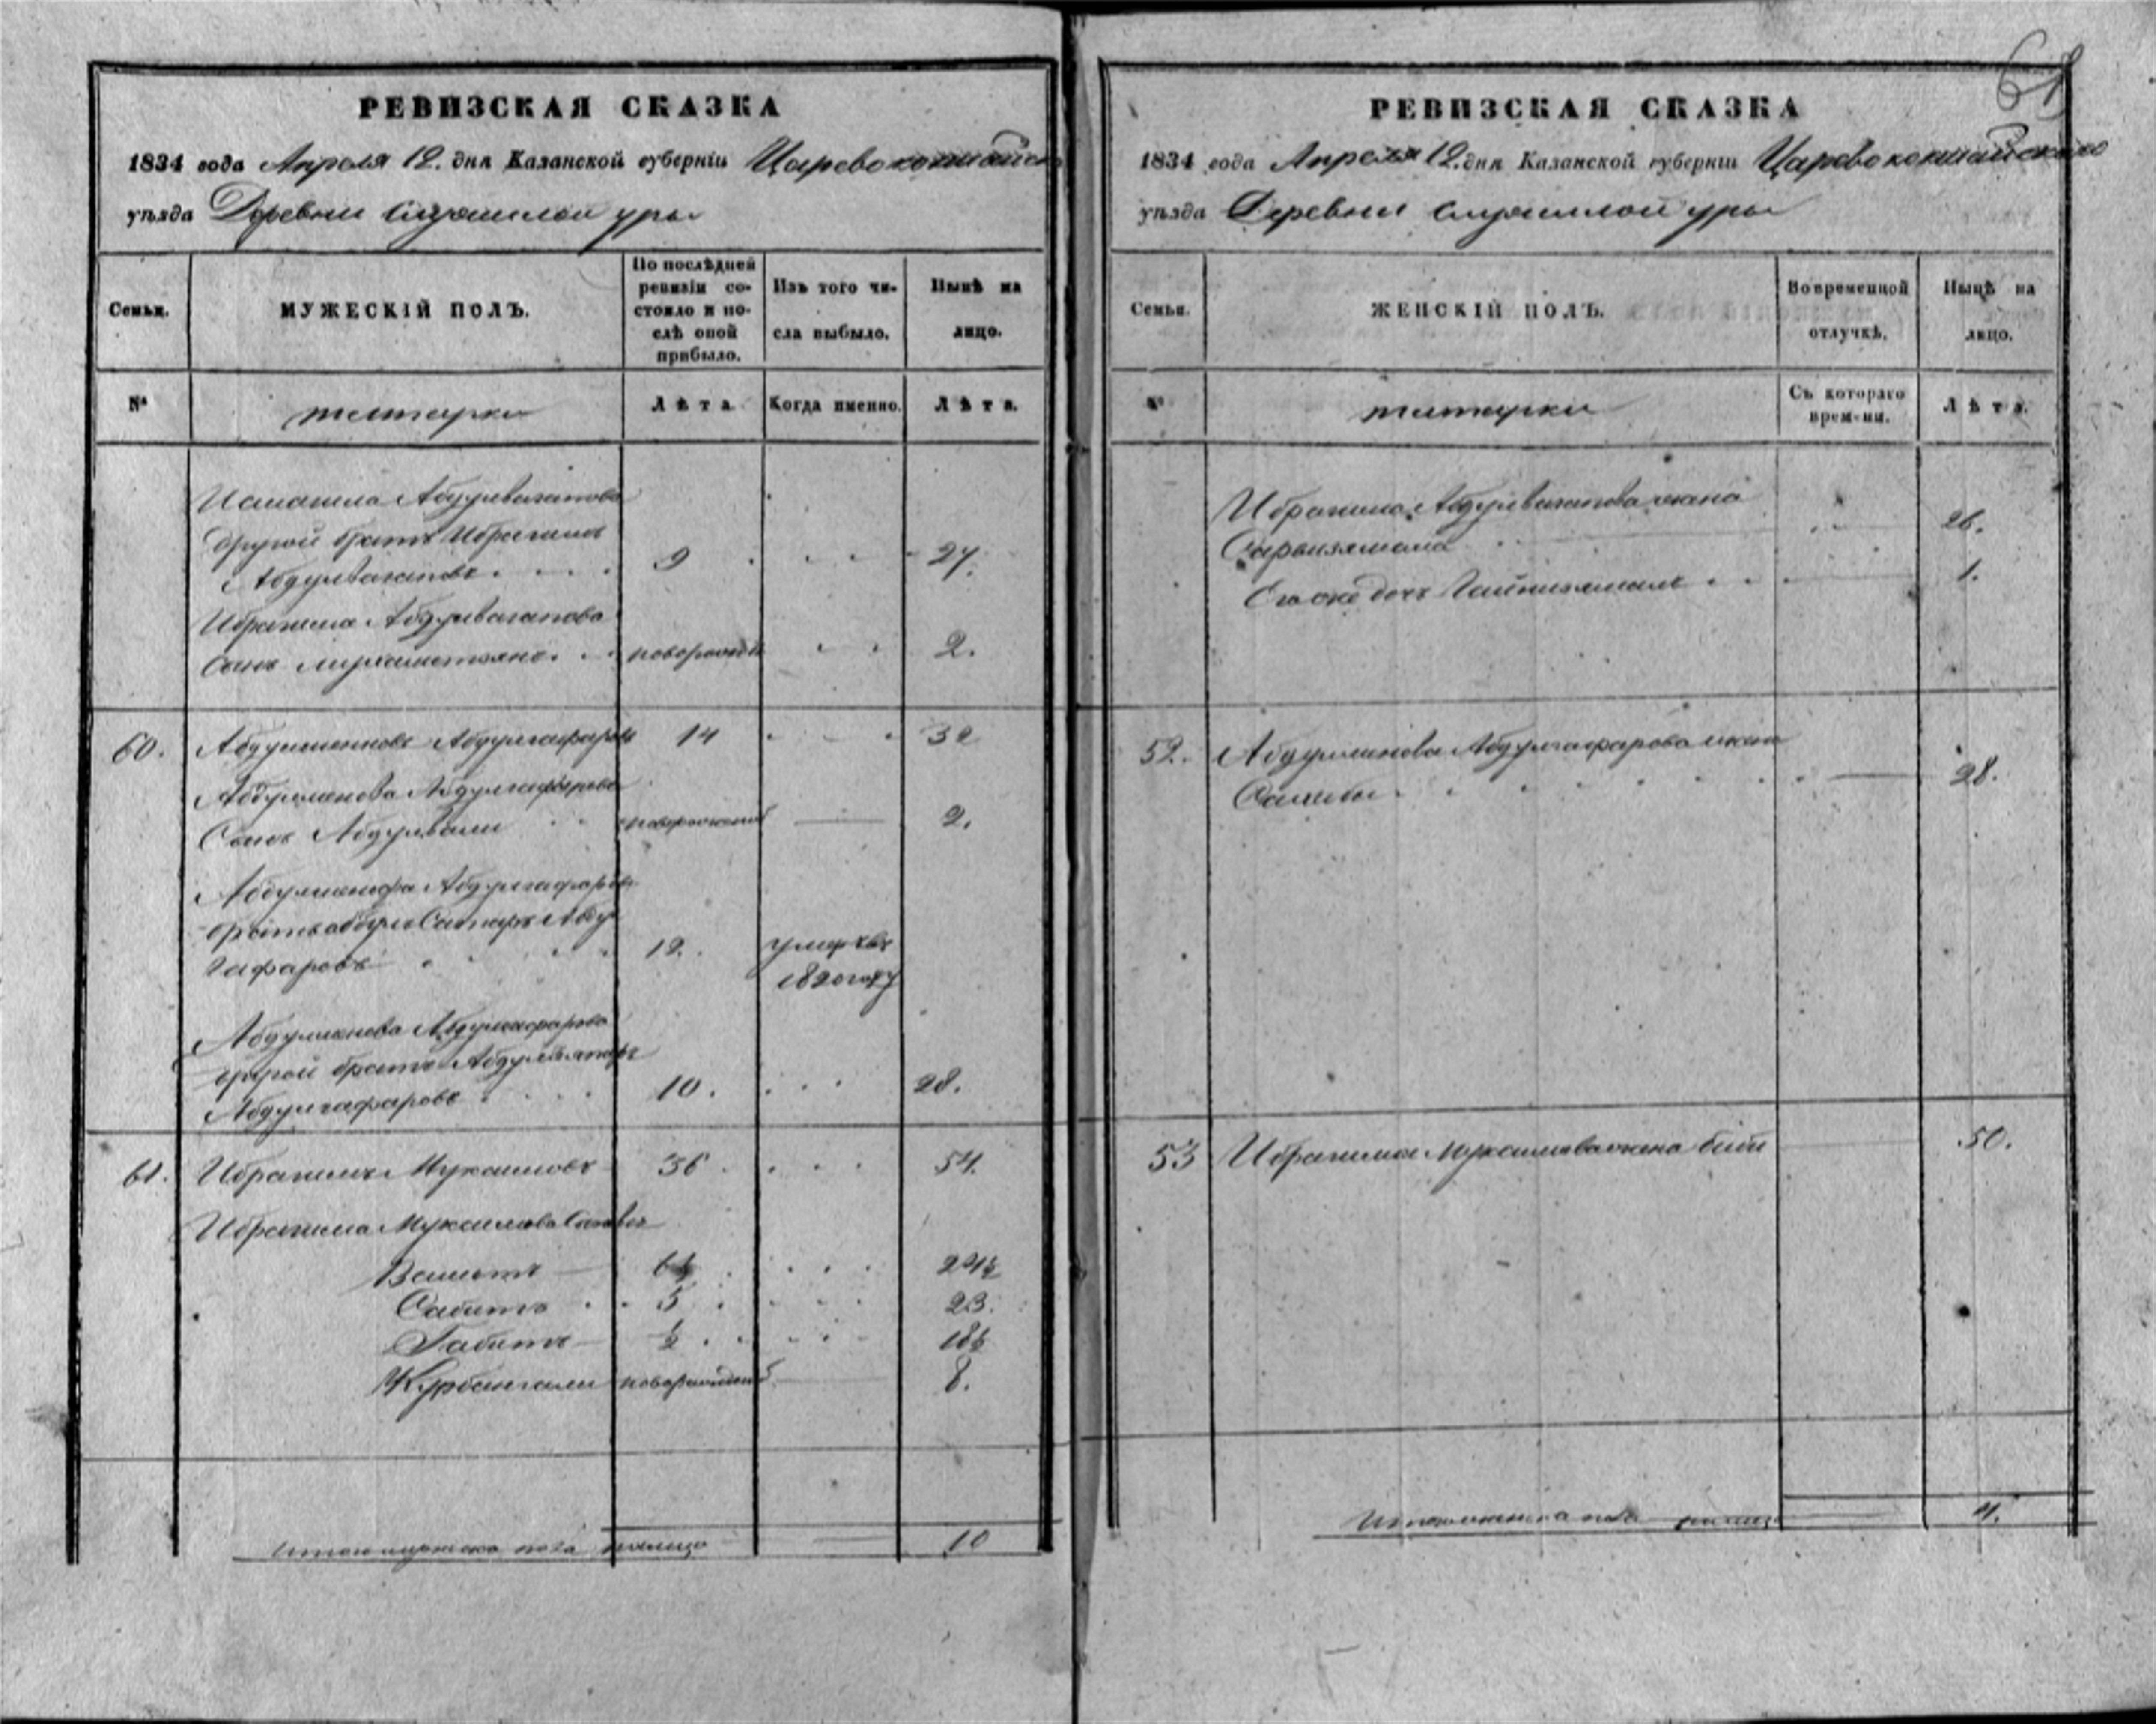 61
РЕВИЗСКАЯ СКАЗКА
1834 года Апреля 12. дня Казанской губерніи Царевококшайска
уѣзда Деревни уры
Семьи.
МУЖЕСКІЙ ПОЛЪ.
По послѣдней
ревизіи со-
стояло и по-
слѣ оной
прибыло.
Изъ того чи-
сла выбыло.
Нынѣ на
лицо.
№
татары
Лѣта.
Когда именно.
Лѣта.
Исмагила Абдулвагапова
другой братъ Ибрагимъ
Абдулвагаповъ 9 27.
Ибрагима Абдулвагапова
Сынъ новорожденъ 2.
60. Абдулменовъ Абдулгафаровъ 14 32
Абдулменова Абдулгафарова
Сынъ Абдулвали новорожденъ 2.
Абдулгафарова
братъ Абдулъ Сатаръ Абдул
гафаровъ 12. умеръ въ
1820 году
Абдулменова Абдулгафарова
другой братъ
Абдулгафаровъ 10. 28.
61. Ибрагимъ Мукаимовъ 36 54.
Ибрагима Мукаимова Сыновья
Вагитъ 6½ 24½
Сабитъ 5 23.
Габитъ ½ 18½
Курбангали новорожденъ 8.
Итого мужеска пола налицо 10
РЕВИЗСКАЯ СКАЗКА
1834 года Апреля 12. дня Казанской губерніи Царевококшайскаго
уѣзда Деревни уры
Семьи.
ЖЕНСКІЙ ПОЛЪ.
Во временной
отлучкѣ.
Нынѣ на
лицо.
№
татарки
Съ котораго
времени.
Лѣта.
Ибрагима Абдулвагапова жена
26.
Его же дочь 1.
52. Абдулменова Абдулгафарова жена
28.
53 Ибрагима Мукаимова жена биби 50.
Итого женска пола налицо 4.